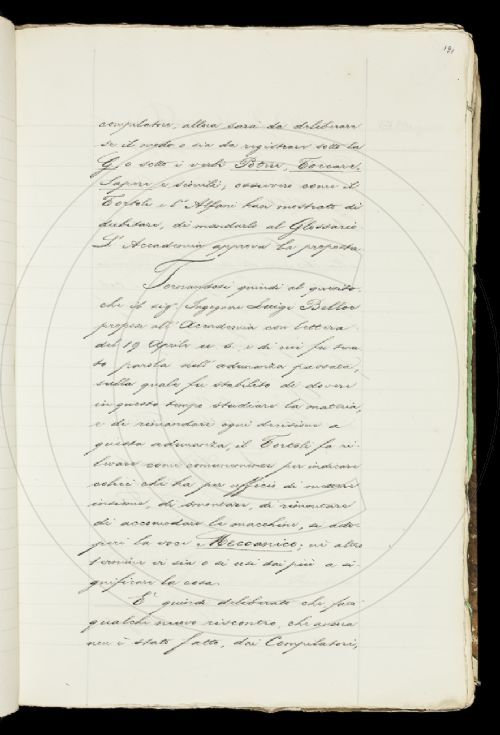 191
compilatore, allora sarà da deliberare
se il modo o sia da registrare sotto la
G, o sotto i verbi Potere, Toccare,
Sapere e simili, ovvero come il
Tortoli e l'Alfani han mostrato di
dubitare, di mandarlo al Glossario
L'Accademia approva la proposta
Tornandosi quindi al quesito
che il sig.r Ingegnere Luigi Bellot
propose all'Accademia con lettera
del 19 Aprile a. s. e di cui fu tenu
to parola nell'adunanza passata,
nella quale fu stabilito di dovere
in questo tempo studiare la materia,
e di rimandare ogni decisione a
questa adunanza, il Tortoli fa ri
levare come comunemente per indicare
colui che ha per ufficio di mettere
insieme, di smontare, di rimontare
di accomodare le macchine, si ado-
peri la voce Meccanico; nè altro
termine vi sia o si usi dai più a si
gnificare la cosa.
È quindi deliberato che fatto
qualche nuovo riscontro, che ancora
non è stato fatto, dai Compilatori,